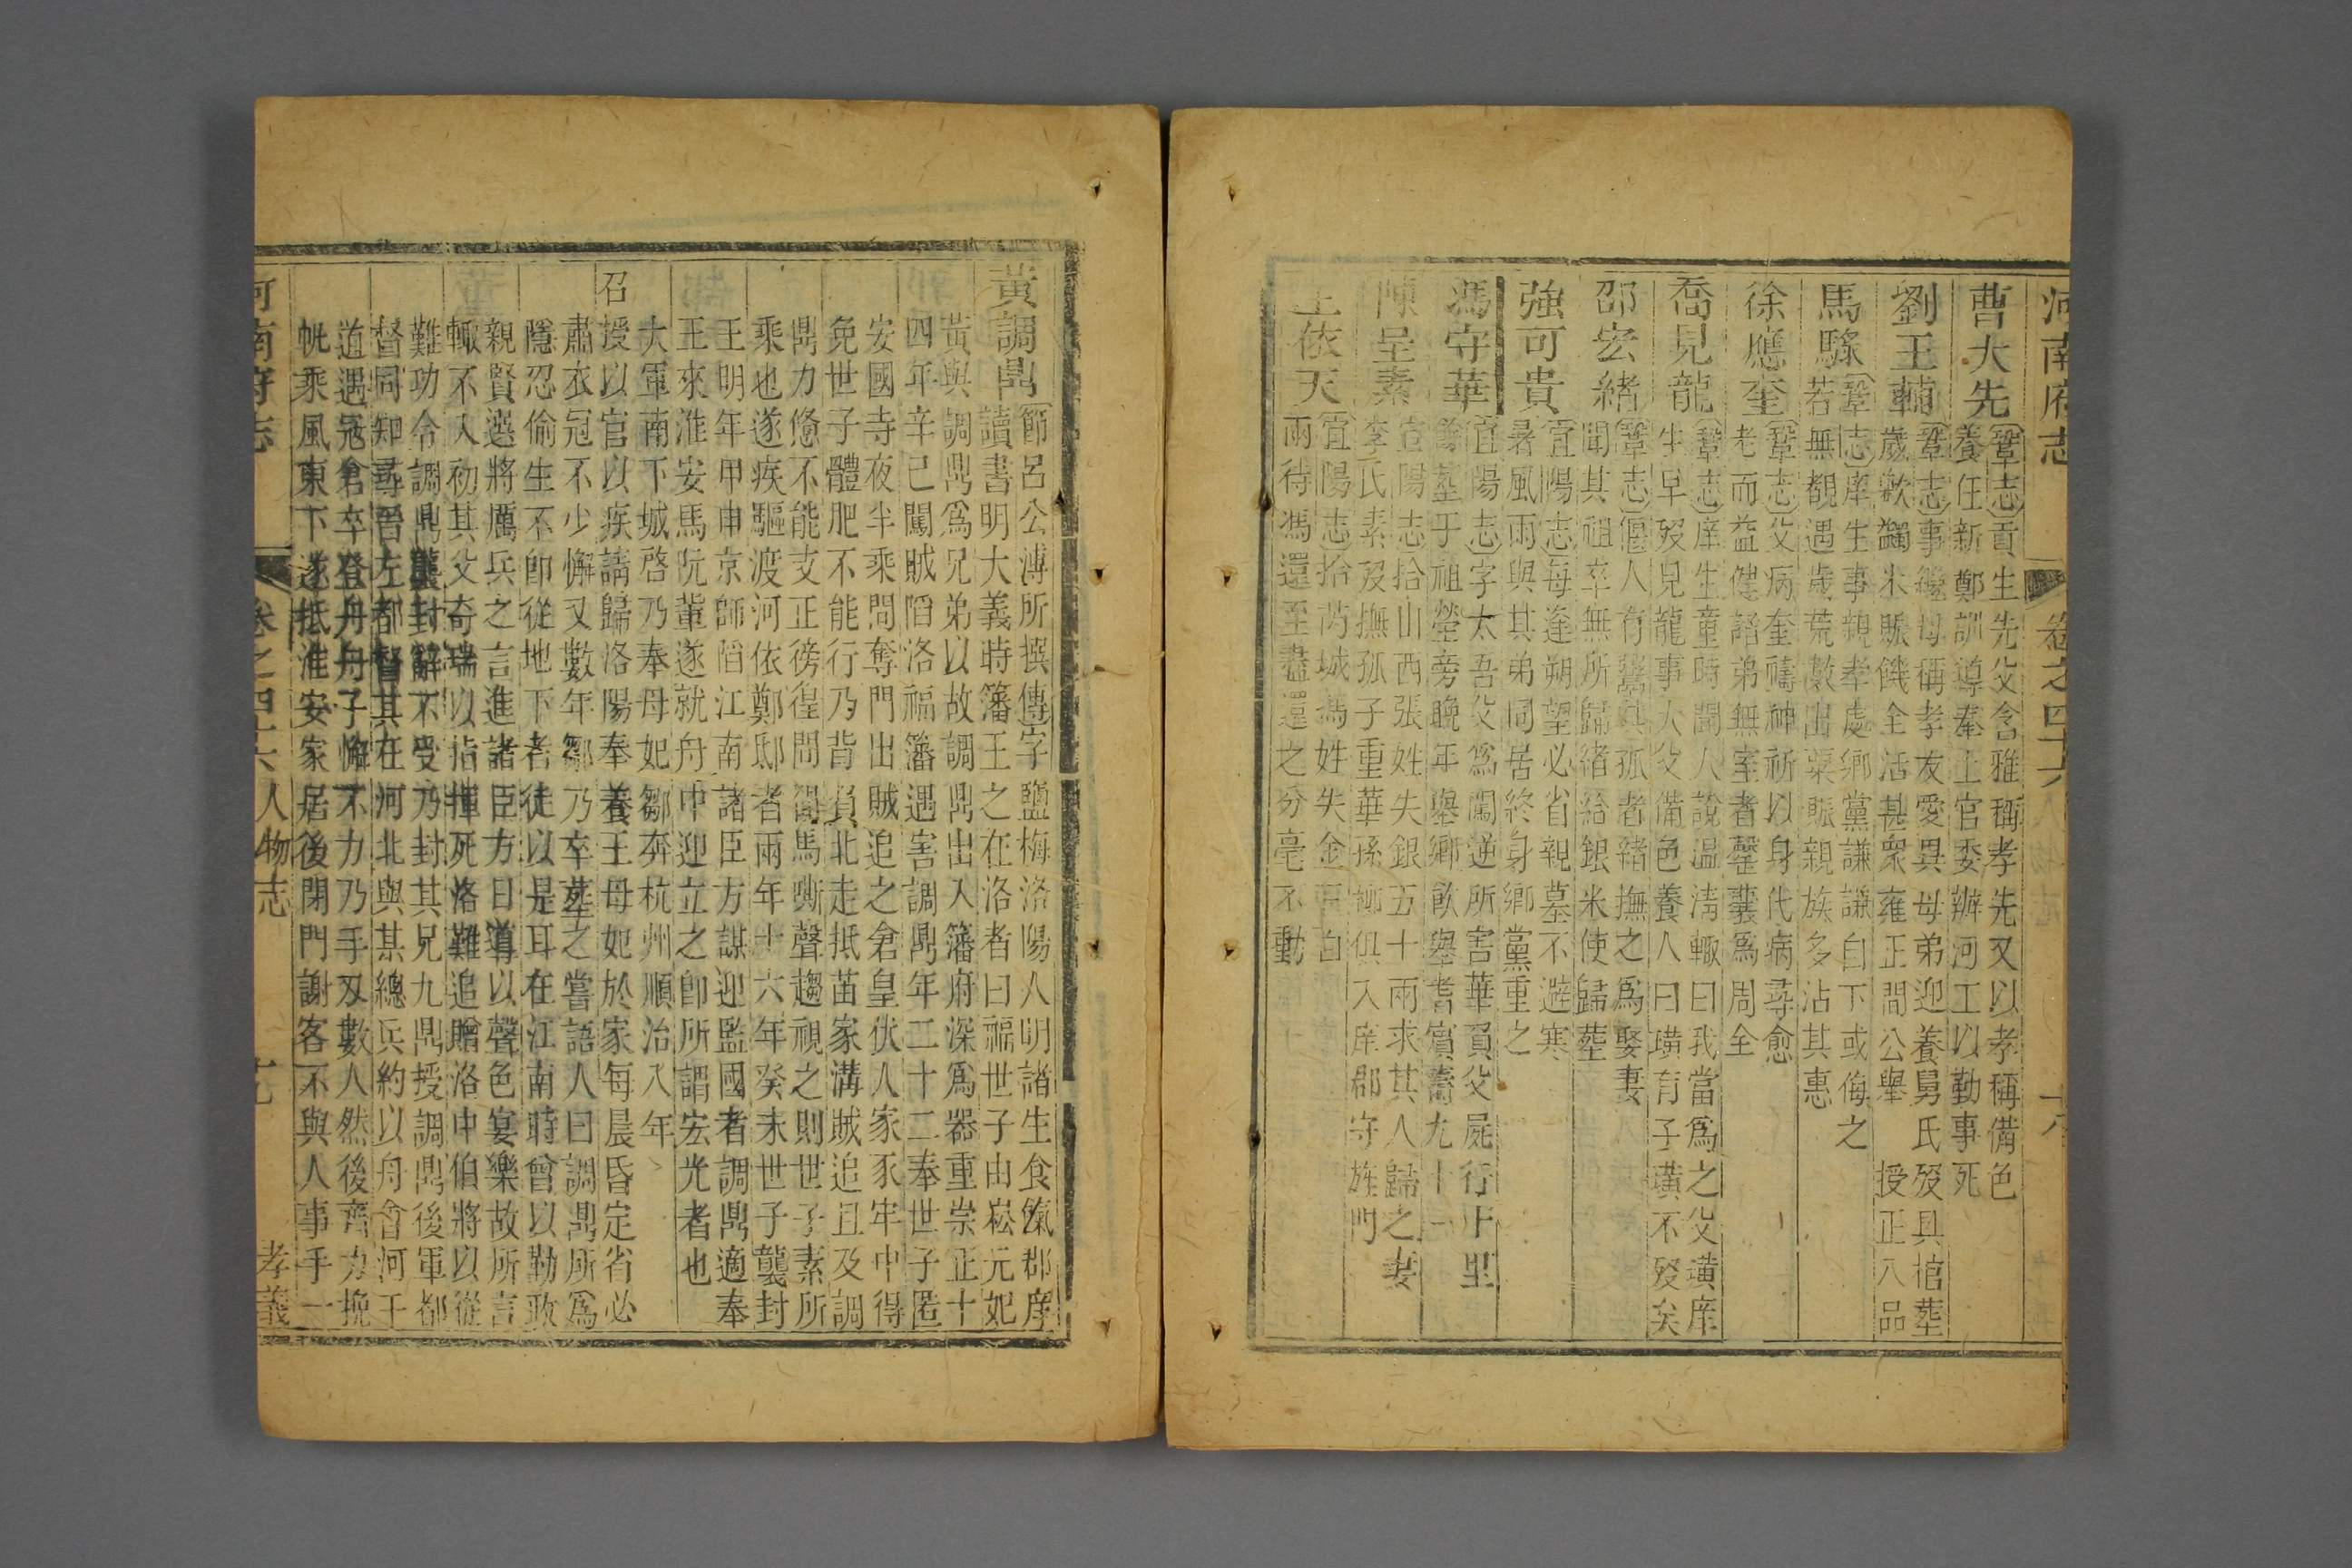 河南府志 卷之四十六 人物志 十八
曹大先
鞏志貢生先父含雅稱孝先又以孝稱備色
養任新鄭訓導奉上官委辦河工以勤事死
劉王輔
鞏志事繼母稱孝友愛異母弟迎養舅氏歿具棺葬
歲歉蠲米賑饑全活甚眾雍正間公舉授正八品
馬騄
鞏志庠生事親孝處鄉黨謙謙自下或侮之
若無覩遇歲荒數出粟賑親族多沾其惠
徐應奎
鞏志父病奎禱神祈以身代病尋愈
老而益健諸弟無室者罄囊爲周全
喬見龍
鞏志庠生童時聞人說溫凊輒曰我當爲之父璜庠
生早歿見龍事大父備色養人曰璜有子璜不歿矣
邵宏緒
鞏志偃人有鬻其孤者緒撫之爲娶妻
聞其祖卒無所歸緒給銀米使歸葬
強可貴
宜陽志每逢朔望必省親墓不避寒
暑風雨與其弟同居終身鄉黨重之
馮守華
宜陽志字太吾父爲闖逆所害華負父屍行十里
餘塟于祖塋旁晚年舉鄉飲舉耆賓壽九十一
陳呈素
宜陽志拾山西張姓失銀五十兩求其人歸之妻
李氏素歿撫孤子重華孫俱入庠郡守旌門
王依天
宜陽志拾芮城馮姓失金百
兩待馮還至盡還之分毫不動
黃調鼎
節呂公溥所撰傳字鹽梅洛陽人明諸生食餼郡庠
讀書明大義時籓王之在洛者曰福世子由崧元妃
黃與調鼎爲兄弟以故調鼎出入籓府深爲器重崇正十
四年辛巳闖賊陷洛福籓遇害調鼎年二十二奉世子匿
安國寺夜半乘間奪門出賊追之倉皇伏人家豕牢中得
免世子體肥不能行乃背負北走抵苗家溝賊追且及調
鼎力憊不能支正徬徨間聞馬嘶聲趨視之則世子素所
乘也遂疾驅渡河依鄭邸者兩年十六年癸未世子襲封
王明年甲申京師陷江南諸臣方謀迎監國者調鼎適奉
王來淮安馬阮輩遂就舟中迎立之卽所謂宏光者也
大軍南下城啓乃奉母妃鄒奔杭州順治入年
召
授以官以疾請歸洛陽奉養王母妃於家每晨昏定省必
肅衣冠不少懈又數年鄒乃卒塟之嘗語人曰調鼎所爲
隱忍偷生不卽從地下者徒以是耳在江南時曾以勤政
親賢選將厲兵之言進諸臣方日導以聲色宴樂故所言
輒不入初其父奇瑞以指揮死洛難追贈洛中伯將以從
難功令調鼎襲封辭不受乃封其兄九鼎授調鼎後軍都
督同知尋晉左都督其在河北與某總兵約以舟會河干
道遇寇倉卒登舟舟子懈不力乃手刃數人然後齊力挽
帆乘風東下遂抵淮安家居後閉門謝客不與人事手一
河南府志 卷之四十六 人物志 十九 孝義